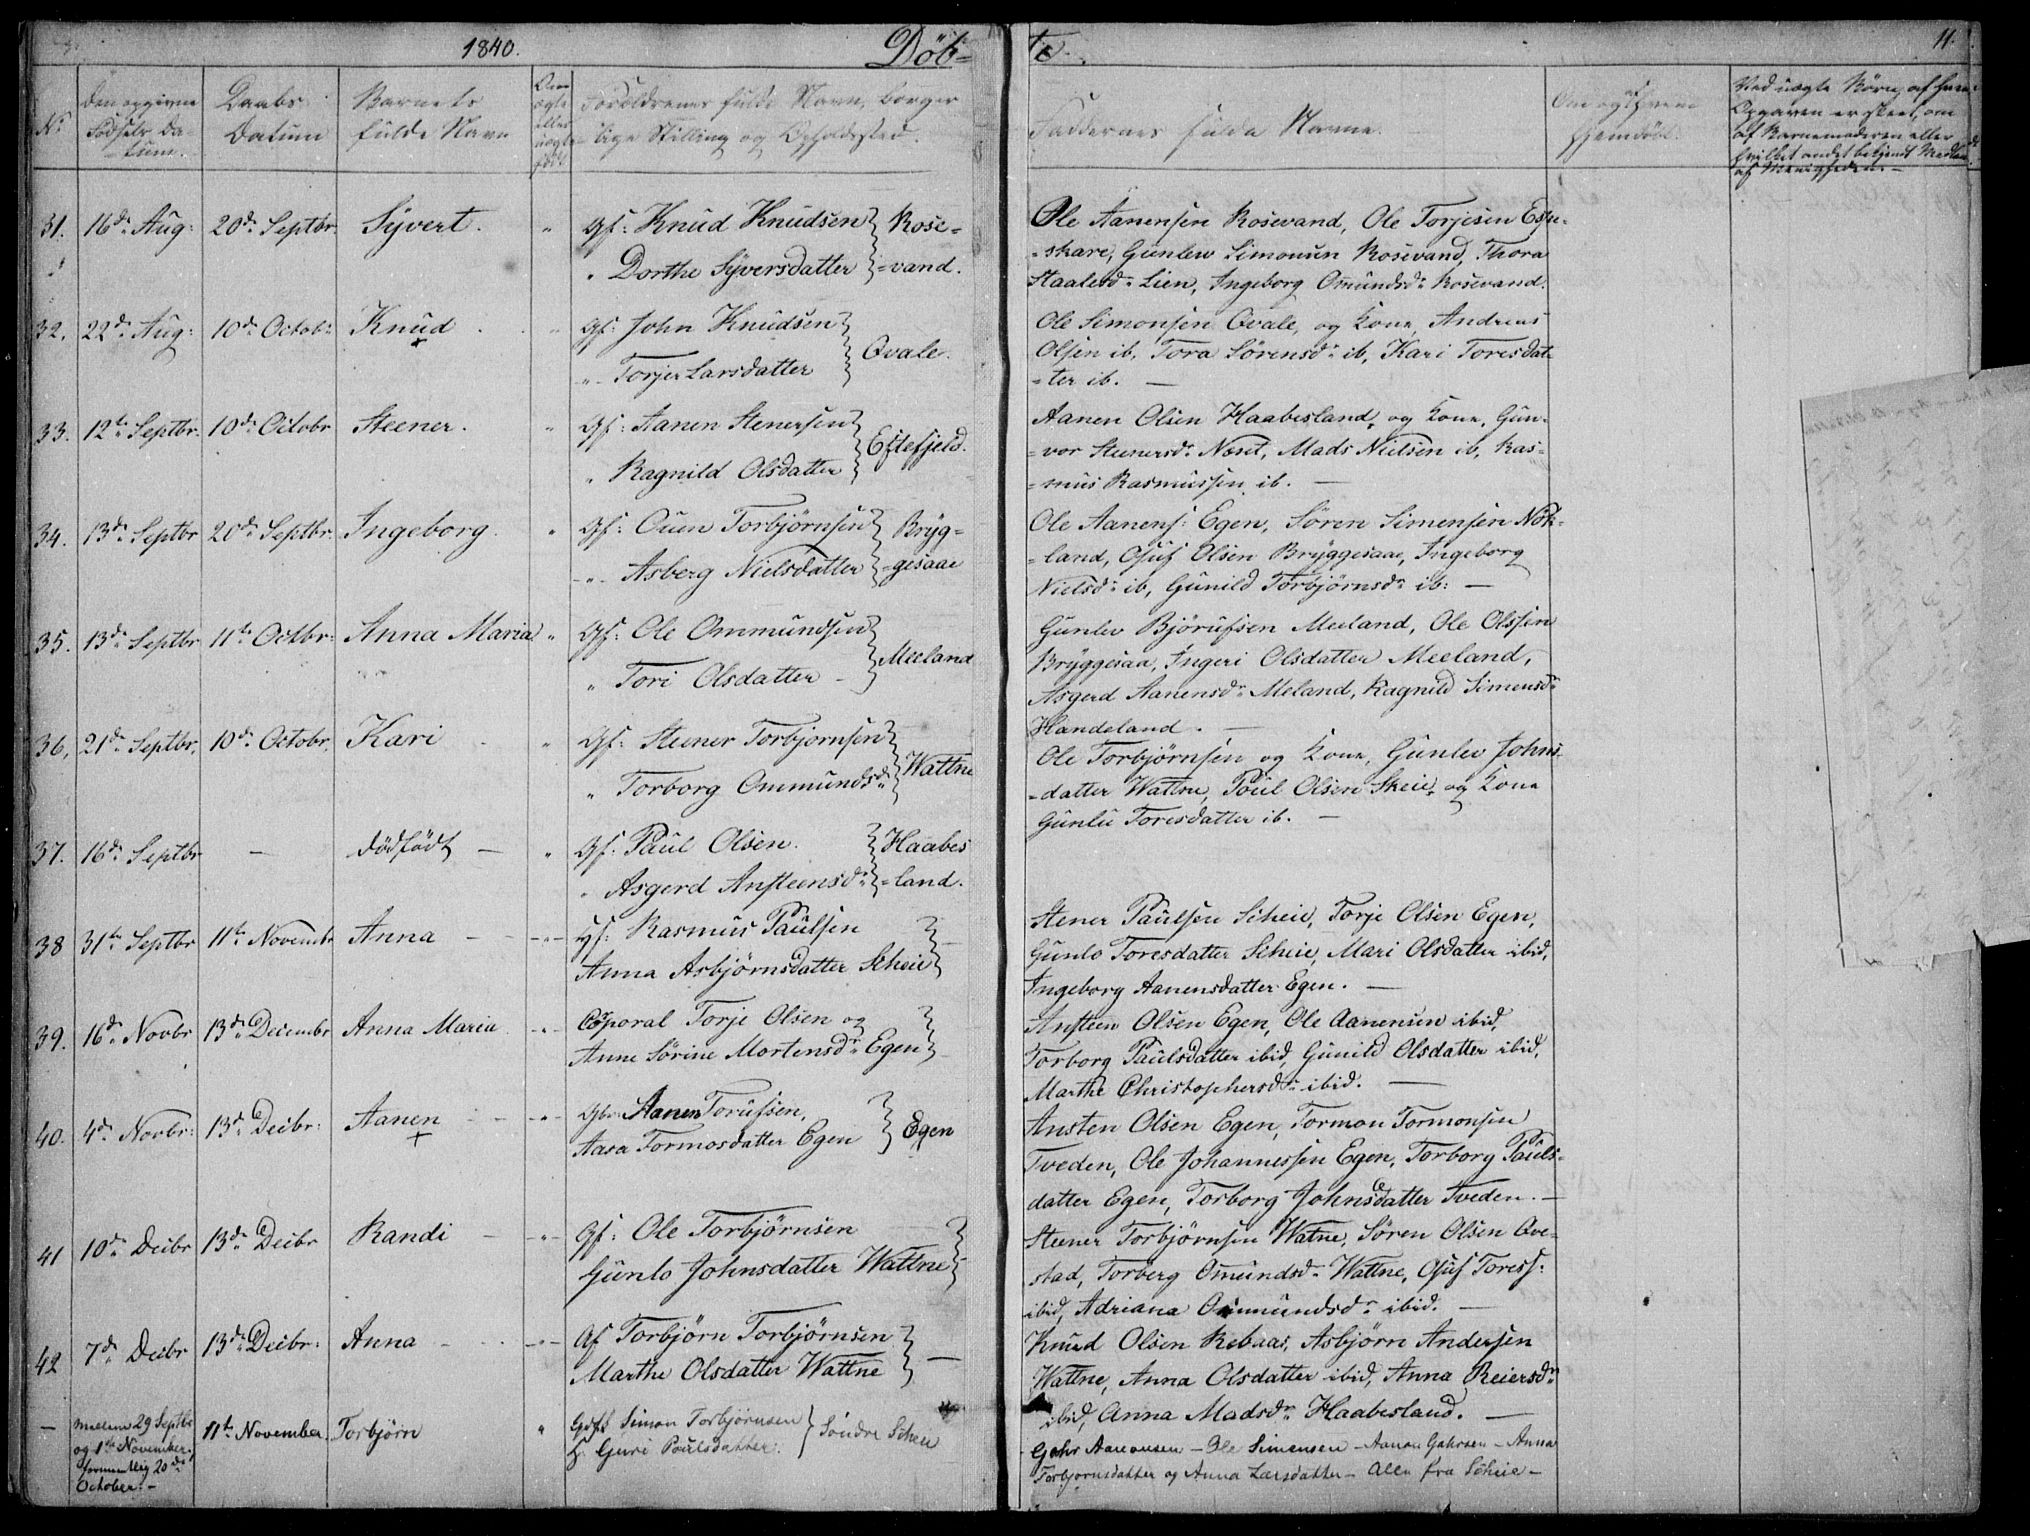 1840. Döb= te. 11.
No
den opgivne
Födsels Da-
tum.
Daabs
Datum
Barnets
fulde Navn
Om
ægte
eller
uægte
født
Forældrenes fulde Navn, borger
= lige Stilling og Opholdssted.
Faddernes fulde Navne.
Om og af hvem
hjemdöbt.
Ved uægte Börn, af hvem
Opgaven er skeet, om
af Barnemoderen eller
hvilket andet bekjendt Medlem
af Menigheden. -
31. 16de Aug: 20de Septbr. Syvert. " Gf: Knud Knudsen } Rose=
" Dorthe Syversdatter } =vand.
Ole Aanensen Rosevand, Ole Torjesen Espe-
=skare, Gunlev Simonsen Rosevand, Thora
Staalesdr Lien, Ingeborg Omundsdr Rosevand.
32. 22de Aug: 10de Octobr Knud . " Gf: John Knudsen }
" - Torjer Larsdatter } Qvale.
Ole Simonsen Qvale, og Kone, Andreas
Olsen ib, Tora Sörensdr ib, Kari Toresdat-
=ter ib. —
33. 12te Septbr. 10de Octobr Steener. " Gf: Aanen Stenersen }
" Ragnild Olsdatter } Eftefjeld.
Aanen Olsen Haabesland, og Kone, Gun-
=vor Steenersdr Næset, Mads Nielsen ib, Ras=
=mus Rasmussen ib. —
34. 13de Septbr 20de Septbr. Ingeborg. " Gf: Ouen Torbjörnsen } Bryg=
-"- Asberg Nielsdatter } =gesaae
Ole Aanens: Egen, Sören Simensen Nök-
=land, Osuf Olsen Bryggesaae, Ingeborg
Nielsdr ib, Gunild Torbjörnsdr ib: —
35. 13de Septbr 11te Octbr: Anna Maria " Gf: Ole Ommundsen }
" Tori Olsdatter - } Meeland
Gunlev Björufsen Meeland, Ole Olssen
Bryggesaa, Ingeri Olsdatter Meeland,
Asgerd Aanensdr Meland, Ragnild Simensdr
Handeland. —
36. 21de Septbr. 10de Octobr. Kari - " Gf: Steener Torbjornsen }
" Torborg Ommundsdr } Wattne
Ole Torbjörnsen og Kone, Gunlev Johns-
-datter Wattne, Poul Olsen Skeie, og Kone
Gunlu Toresdatter ib. —
37. 16de Septbr — dödfödt — " Gf: Paul Olsen. } Haabes
" Asgerd Ansteensdr } =land.
38 31te Septbr 11te Novembr Anna - - " - Gf: Rasmus Paulsen }
Anna Asbjörnsdatter Scheie } —
Stener Paulsen Scheie, Torje Olsen Egen,
Gunlo Toresdatter Scheie, Mari Olsdatter ibid,
Ingeborg Aanensdatter Egen. —
39. 16de Novbr 13de Decembr Anna Maria - " - Corporal Torje Olsen og }
Anne Sörine Mortensdr Egen }
Ansteen Olsen Egen, Ole Aanensen ibid,
Torborg Paulsdatter ibid, Gunild Olsdatter ibid,
Marthe Christophersdr ibid. —
40. 4de Novbr: 13de Decbr: Aanen - - " - Gbr: Aanen Torufsen, }
Aasa Tormosdatter Egen } Egen
Ansten Olsen Egen, Tormon Tormonsen
Tveden, Ole Johannessen Egen, Torborg Pauls-
datter Egen, Torborg Johnsdatter Tveden. —
41 10de Decbr 13de Decbr Randi - - " - Gf: Ole Torbjörnsen }
Gunlo Johnsdatter Wattne }
Steener Torbjörnsen Watne, Sören Olsen Qve-
stad, Torberg Omundsdr Wattne, Osuf Toress:
ibid, Adriana Ommundsdr ibid. —
42 7de Decbr 13de Decbr: Anna - - " - Gf Torbjörn Torbjörnsen }
Marthe Olsdatter Wattne } —
Knud Olsen Rebaas, Asbjörn Andersen
Wattne, Anna Olsdatter ibid, Anna Reiersdr
ibid, Anna Madsdr Haabesland. —
— mellem 29 Septbr
og 1ste November.
formentlig 20de
October. -
11te November. Torbjörn " Simon Torbjörnsen } Söndre Scheie
H. Guri Poulsdatter. }
Gjehr Aanonsen — Ole Simensen — Aanon Gjahrsen — Anna
Torbjornsdatter og Anna Larsdatter — Alle fra Scheie —